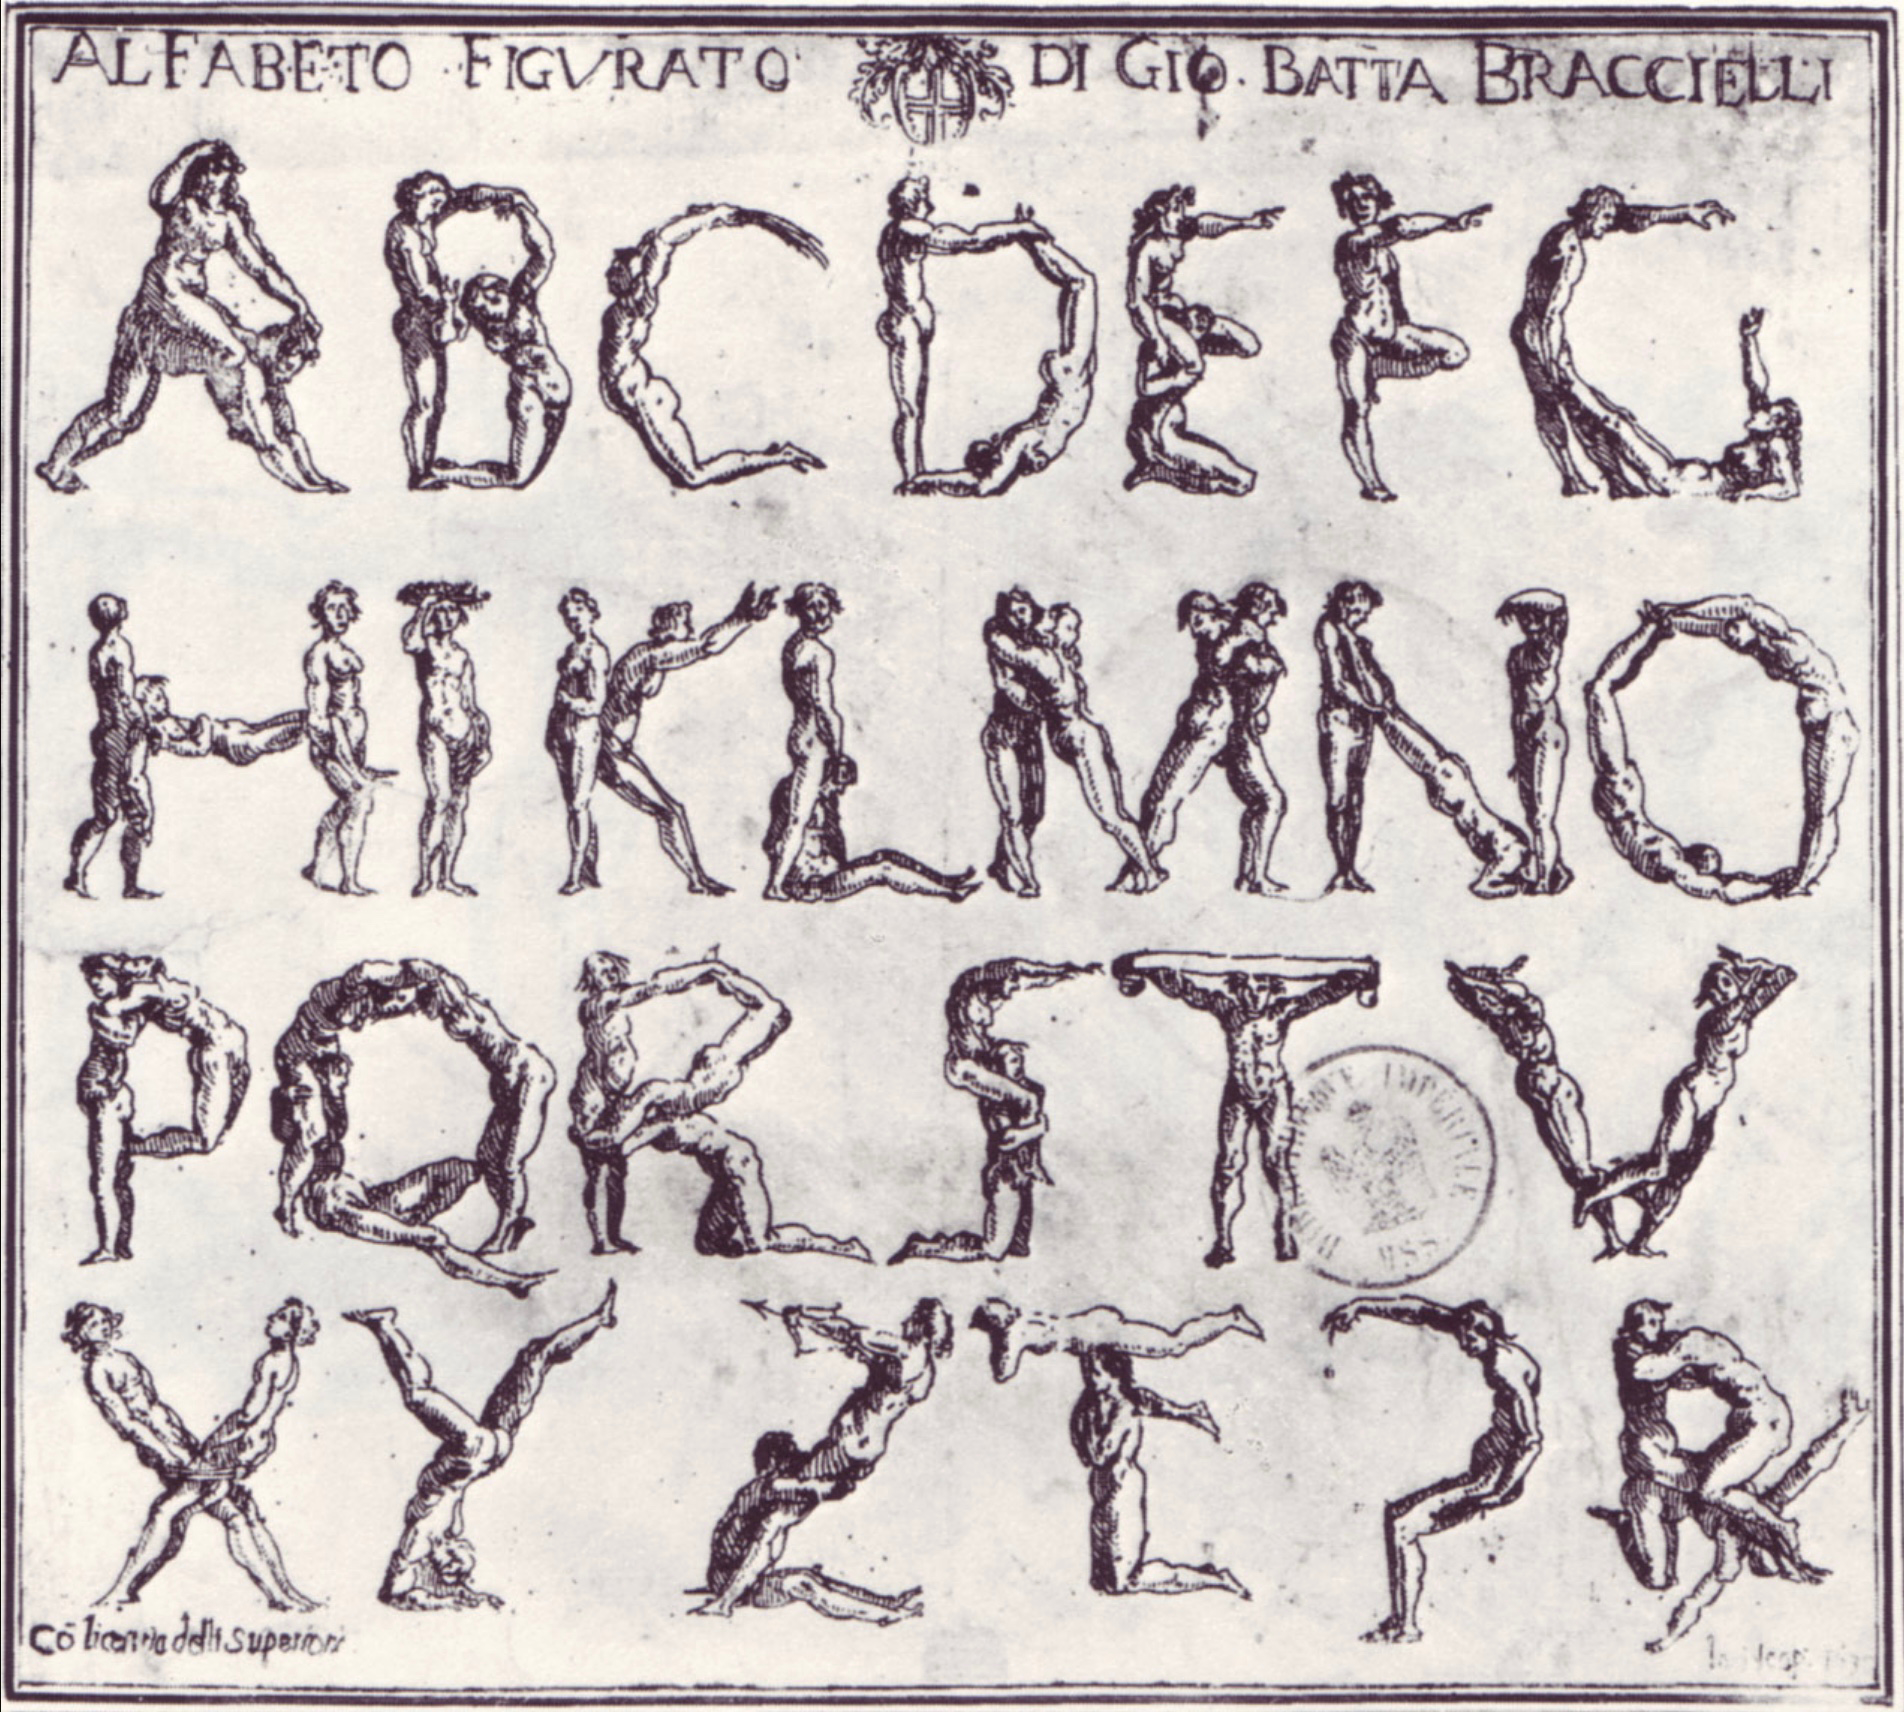 ALFABETO FIGVRATO DI GIO. BATTA BRACCIELLI
A B C D E F G
H I K L M N O
P Q R S T V
X Y Z
Cō licenza delli superiori